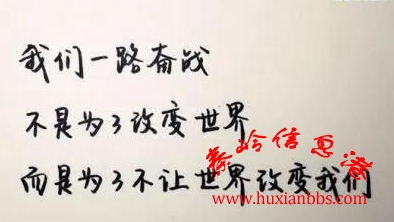 我们一路奋战
不是为了改变世界
而是为了不让世界改变我们
秦岭信息港
www.huxianbbs.com